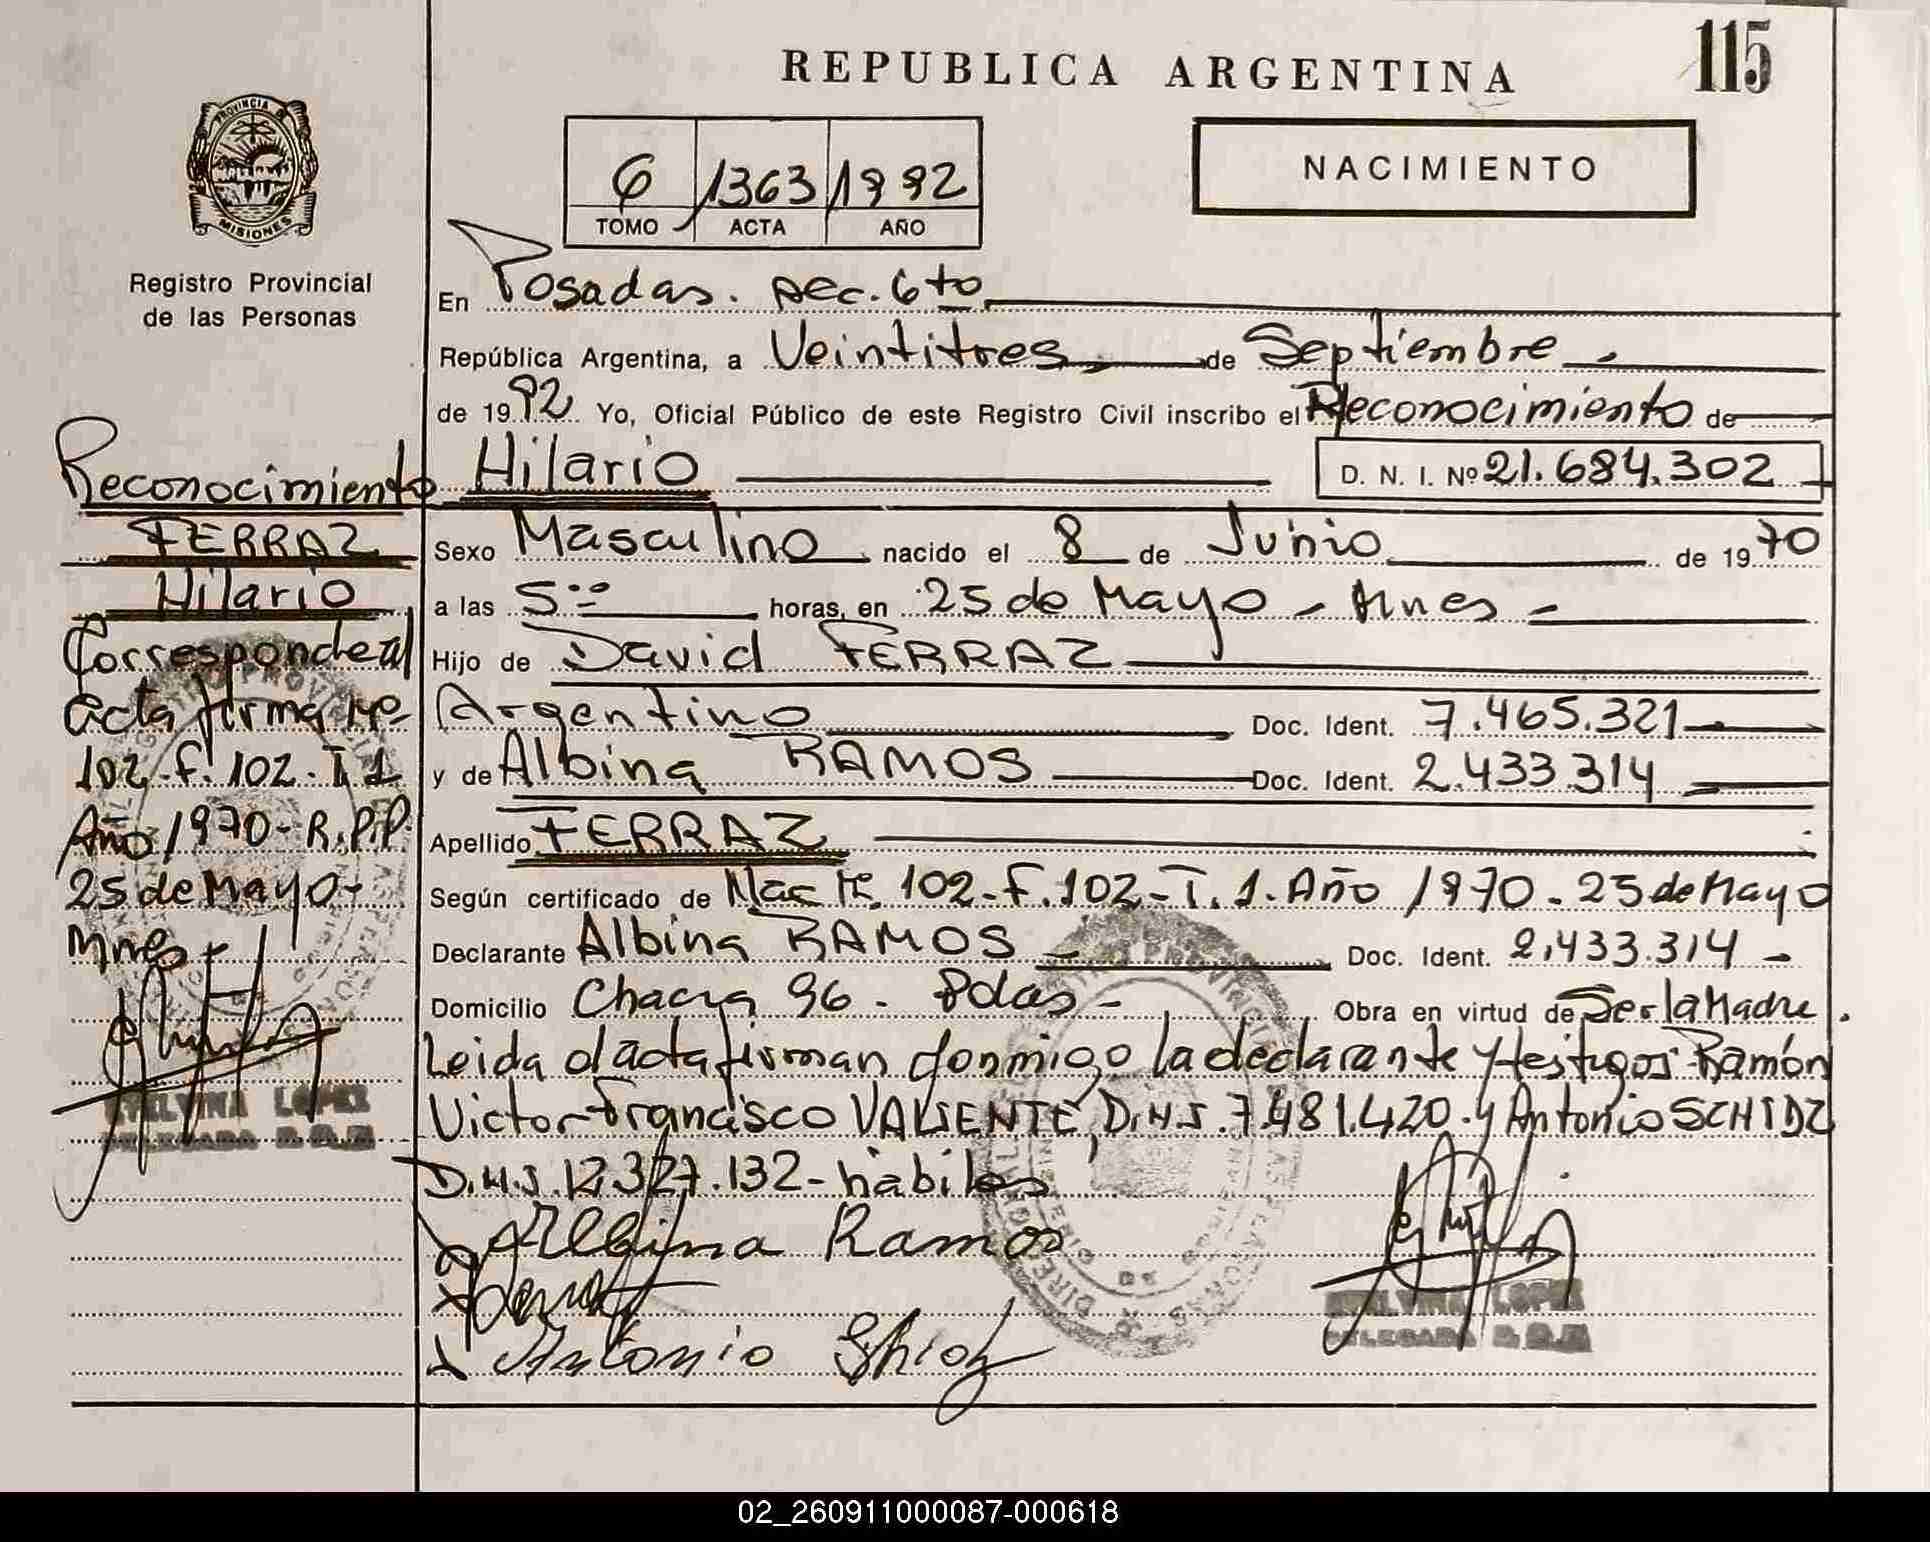 115
REPUBLICA ARGENTINA
NACIMIENTO
6 1363 1992
TOMO ACTA AÑO
PROVINCIA DE
MISIONES
Registro Provincial
de las Personas
En Posadas. sec. 6to
República Argentina, a Veintitres de Septiembre
de 1992 Yo, Oficial Público de este Registro Civil inscribo el Reconocimiento de
Hilario D. N. I. Nº 21.684.302
Sexo Masculino nacido el 8 de Junio de 1970
a las 5:00 horas, en 25 de Mayo - Mnes -
Hijo de David FERRAZ
Argentino Doc. Ident. 7.465.321
y de Albina RAMOS Doc. Ident. 2.433.314
Apellido FERRAZ
Según certificado de Nac Nº 102-F.102-T.1. Año 1970. 25 de Mayo
Declarante Albina RAMOS Doc. Ident. 2.433.314
Domicilio Chacra 96 - Pdas - Obra en virtud de Ser la Madre.
Leida el acta firman conmigo la declarante y testigos Ramón
Victor Francisco VALIENTE, D.N.I. 7.481.420. y Antonio SCHIDZ
D.N.I. 12.327.132 - hábiles
Albina Ramos
Antonio
Reconocimiento
FERRAZ
Hilario
Corresponde al
acta firma Nº
102-F.102-T.1
Año 1970- R.P.P.
25 de Mayo-
Mnes
ETELVINA LOPEZ
DELEGADA
ETELVINA LOPEZ
DELEGADA
02_260911000087-000618